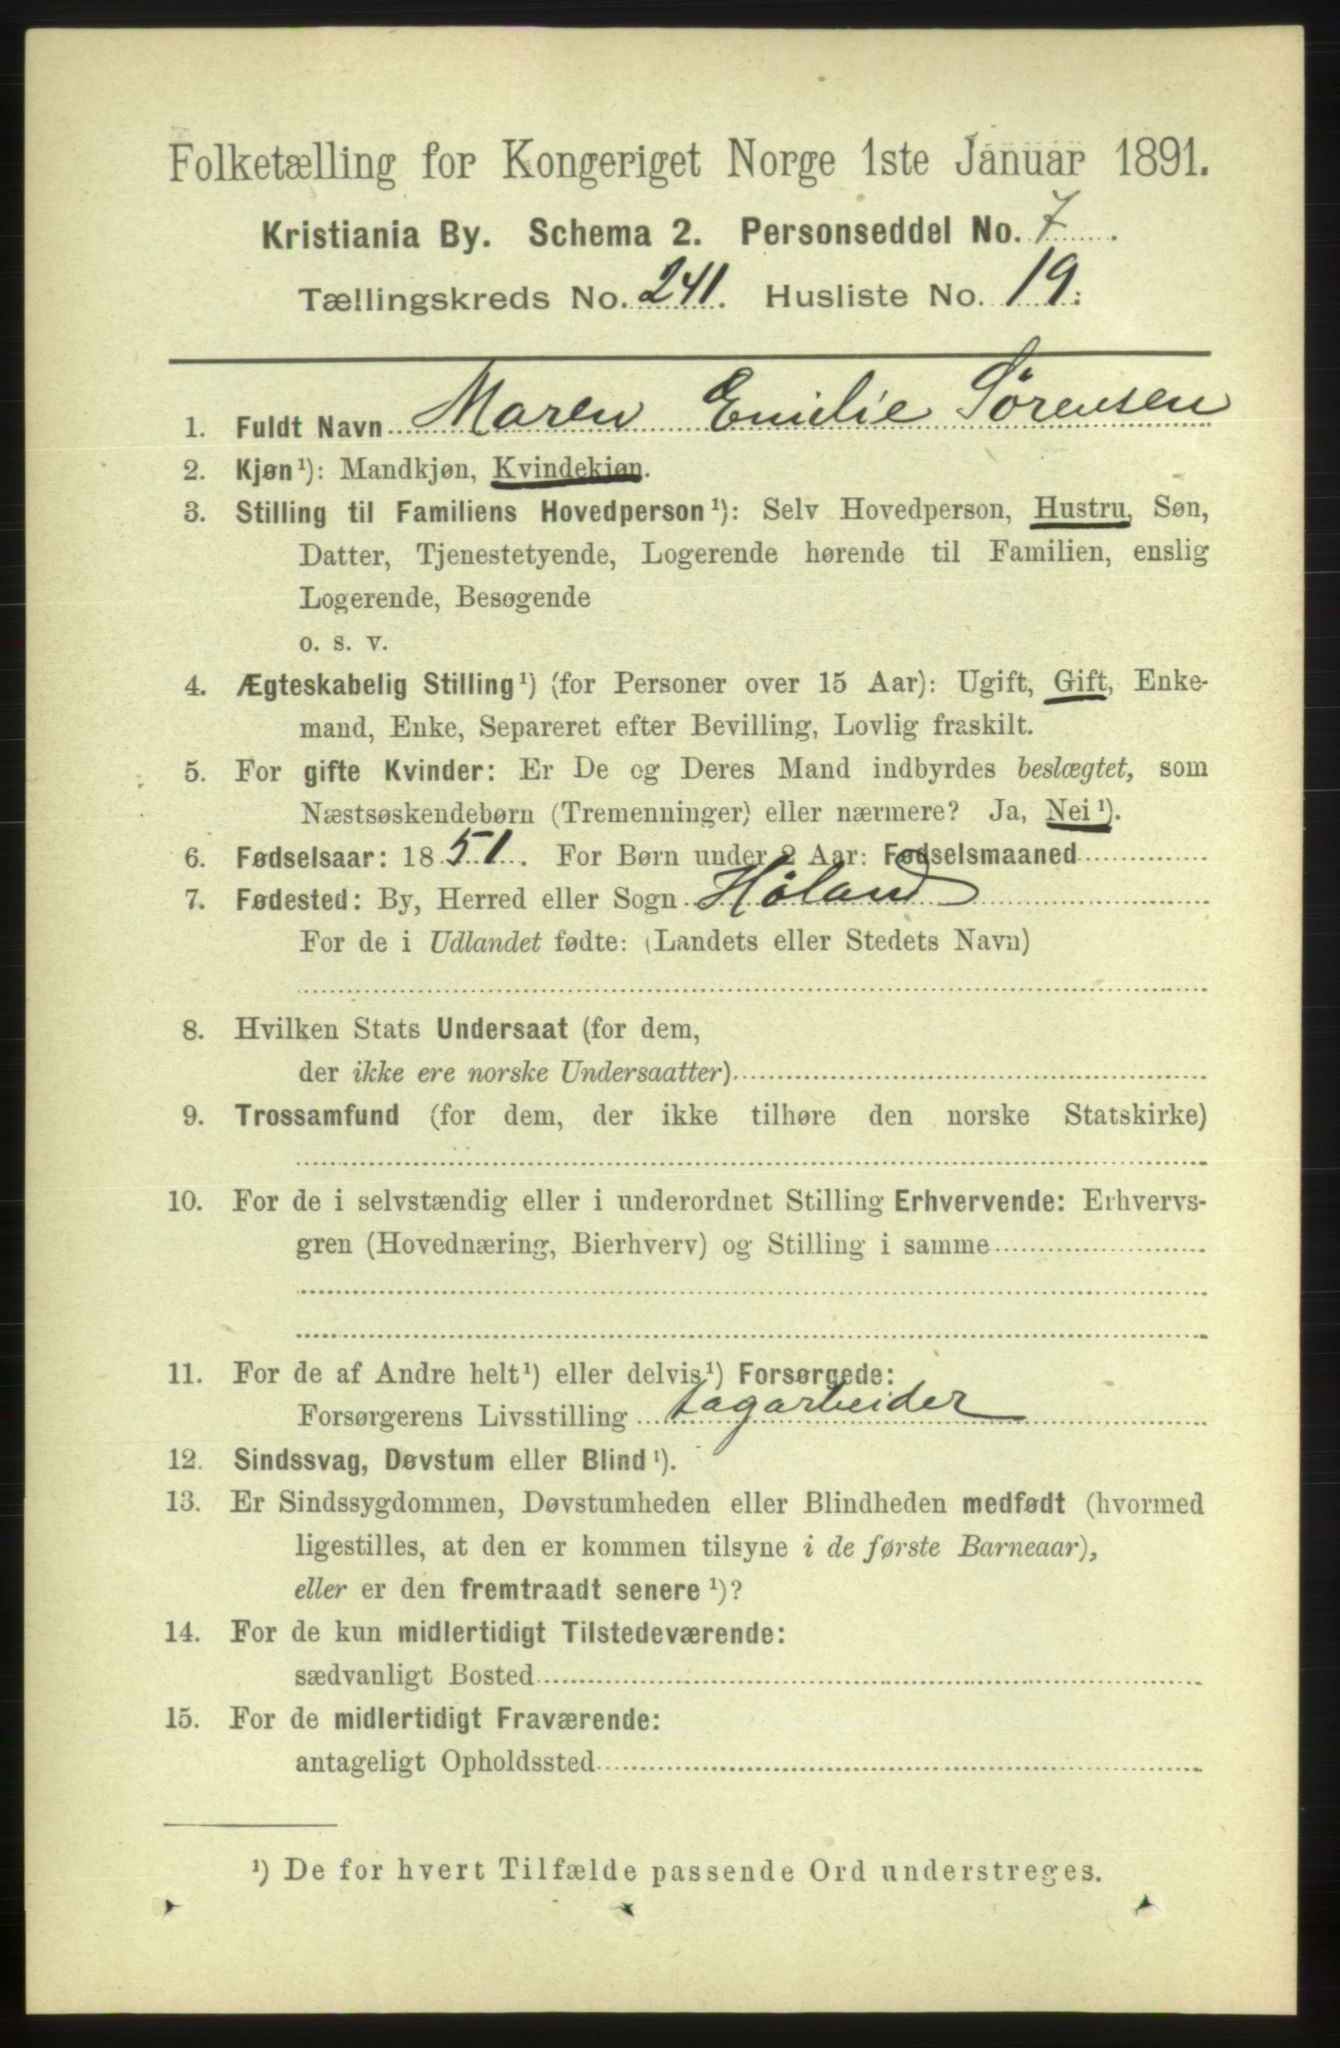 Folketælling for Kongeriget Norge 1ste Januar 1891.
Kristiania By. Schema 2. Personseddel No. 7.
Tællingskreds No. 241. Husliste No. 19.
1. Fuldt Navn Maren Emilie Sørensen
2. Kjøn ¹): Mandkjøn, Kvindekjøn.
3. Stilling til Familiens Hovedperson ¹): Selv Hovedperson, Hustru, Søn,
Datter, Tjenestetyende, Logerende hørende til Familien, enslig
Logerende, Besøgende
o. s. v.
4. Ægteskabelig Stilling ¹) (for Personer over 15 Aar): Ugift, Gift, Enke-
mand, Enke, Separeret efter Bevilling, Lovlig fraskilt.
5. For gifte Kvinder: Er De og Deres Mand indbyrdes beslægtet, som
Næstsøskendebørn (Tremenninger) eller nærmere? Ja, Nei ¹).
6. Fødselsaar: 1851. For Børn under 2 Aar: Fødselsmaaned
7. Fødested: By, Herred eller Sogn Høland
For de i Udlandet fødte: (Landets eller Stedets Navn)
8. Hvilken Stats Undersaat (for dem,
der ikke ere norske Undersaatter)
9. Trossamfund (for dem, der ikke tilhøre den norske Statskirke)
10. For de i selvstændig eller i underordnet Stilling Erhvervende: Erhvervs-
gren (Hovednæring, Bierhverv) og Stilling i samme
11. For de af Andre helt ¹) eller delvis ¹) Forsørgede:
Forsørgerens Livsstilling tagarbeider
12. Sindssvag, Døvstum eller Blind ¹).
13. Er Sindssygdommen, Døvstumheden eller Blindheden medfødt (hvormed
ligestilles, at den er kommen tilsyne i de første Barneaar),
eller er den fremtraadt senere ¹)?
14. For de kun midlertidigt Tilstedeværende:
sædvanligt Bosted
15. For de midlertidigt Fraværende:
antageligt Opholdssted
¹) De for hvert Tilfælde passende Ord understreges.